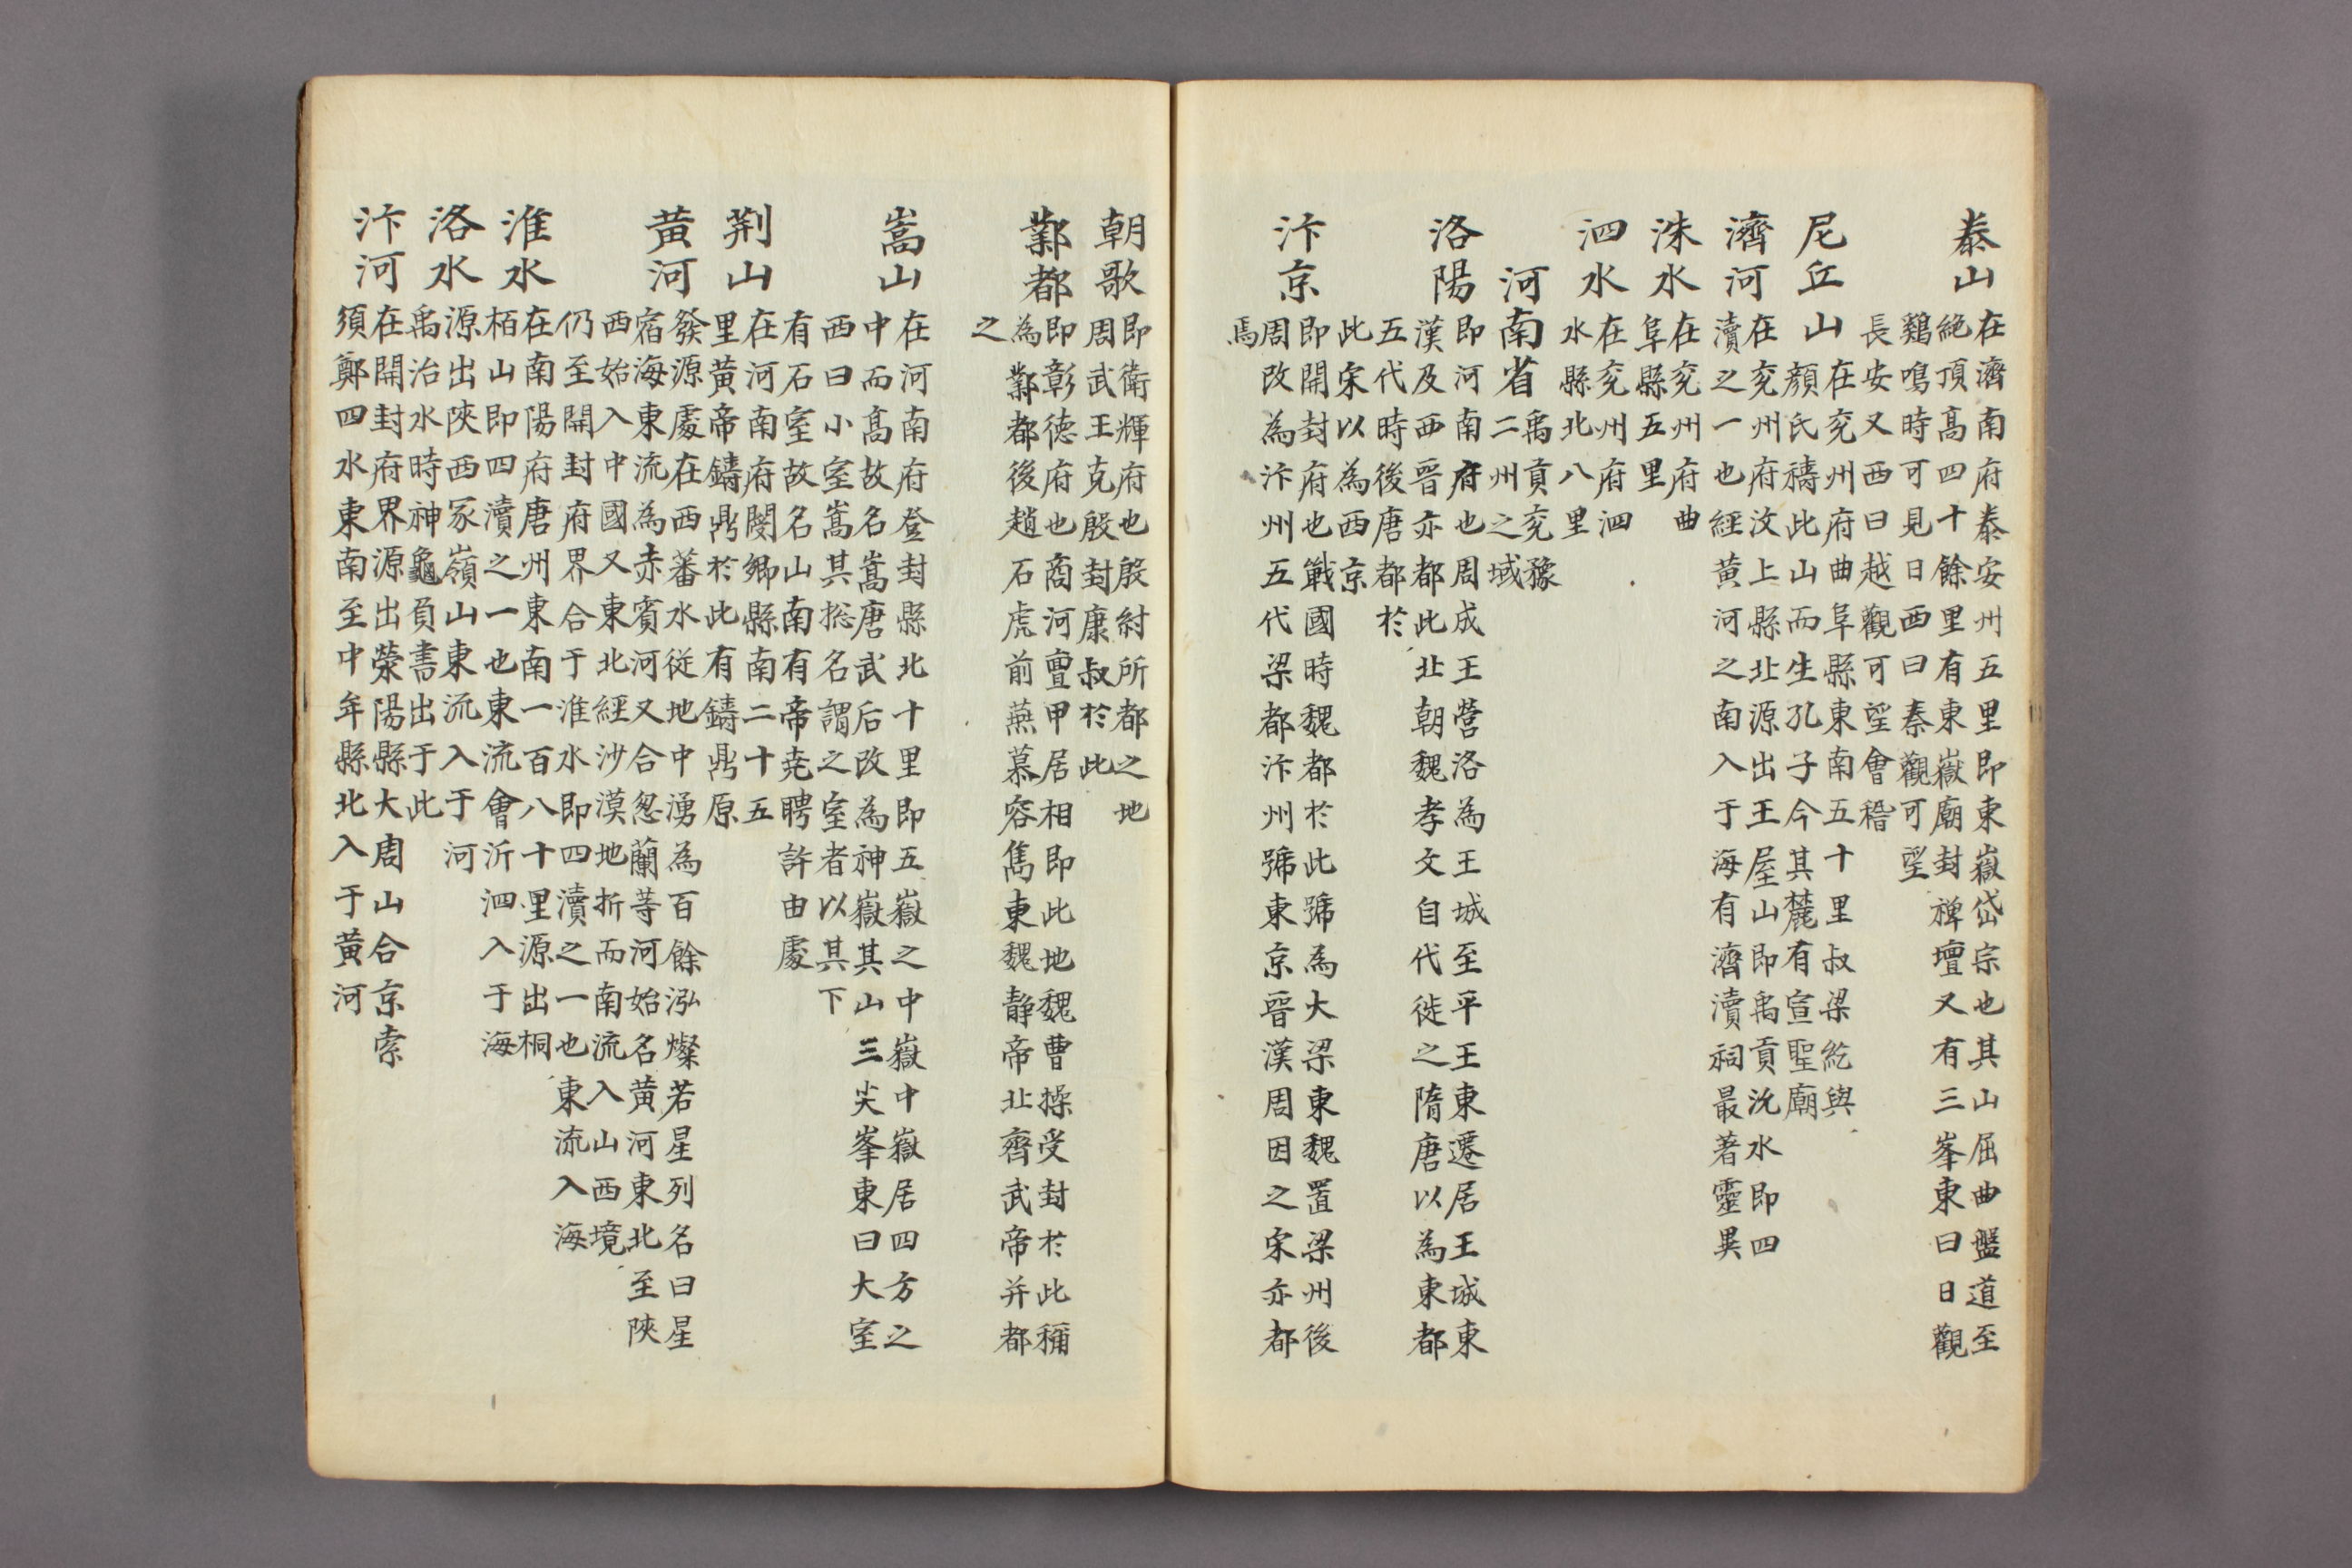 泰山 在濟南府泰安州五里即東嶽岱宗也其山屈曲盤道至
絶頂髙四十餘里有東嶽廟封禅壇又有三峯東曰日觀
鷄鳴時可見日西曰秦觀可望
長安又西曰越觀可望會稽
尼丘山 在兖州府曲阜縣東南五十里叔梁紇與
顔氏禱此山而生孔子今其麓有宣聖廟
濟河 在兖州府汶上縣北源出王屋山即禹貢沇水即四
瀆之一也經黄河之南入于海有濟瀆祠最著靈異
洙水 在兖州府曲
阜縣五里
泗水 在兖州府泗
水縣北八里
河南省 禹貢兖豫
二州之域
洛陽 即河南府也周成王營洛為王城至平王東遷居王城東
漢及西晋亦都此北朝魏孝文自代徙之隋唐以為東都
五代時後唐都於
此宋以為西京
汴京 即開封府也戰國時魏都於此號為大梁東魏置梁州後
周改為汴州五代梁都汴州號東京晋漢周因之宋亦都
焉
朝歌 即衛輝府也殷紂所都之地
周武王克殷封康叔於此
鄴都 即彰德府也商河亶甲居相即此地魏曹操受封於此稱
為鄴都後趙石虎前燕慕容雋東魏静帝北齊武帝并都
之
嵩山 在河南府登封縣北十里即五嶽之中嶽中嶽居四方之
中而髙故名嵩唐武后改為神嶽其山三尖峯東曰大室
西曰小室嵩其捴名謂之室者以其下
有石室故名山南有帝尭聘許由處
荆山 在河南府閿鄉縣南二十五
里黄帝鑄鼎於此有鑄鼎原
黄河 發源處在西蕃水従地中湧為百餘泓燦若星列名曰星
宿海東流為赤賔河又合忽蘭等河始名黄河東北至陝
西始入中國又東北經沙漠地折而南流入山西境
仍至開封府界合于淮水即四瀆之一也東流入海
淮水 在南陽府唐州東南一百八十里源出桐
栢山即四瀆之一也東流會沂泗入于海
洛水 源出陝西冢嶺山東流入于河
禹治水時神龜負書出于此
汴河 在開封府界源出滎陽縣大周山合京索
須鄭四水東南至中牟縣北入于黄河